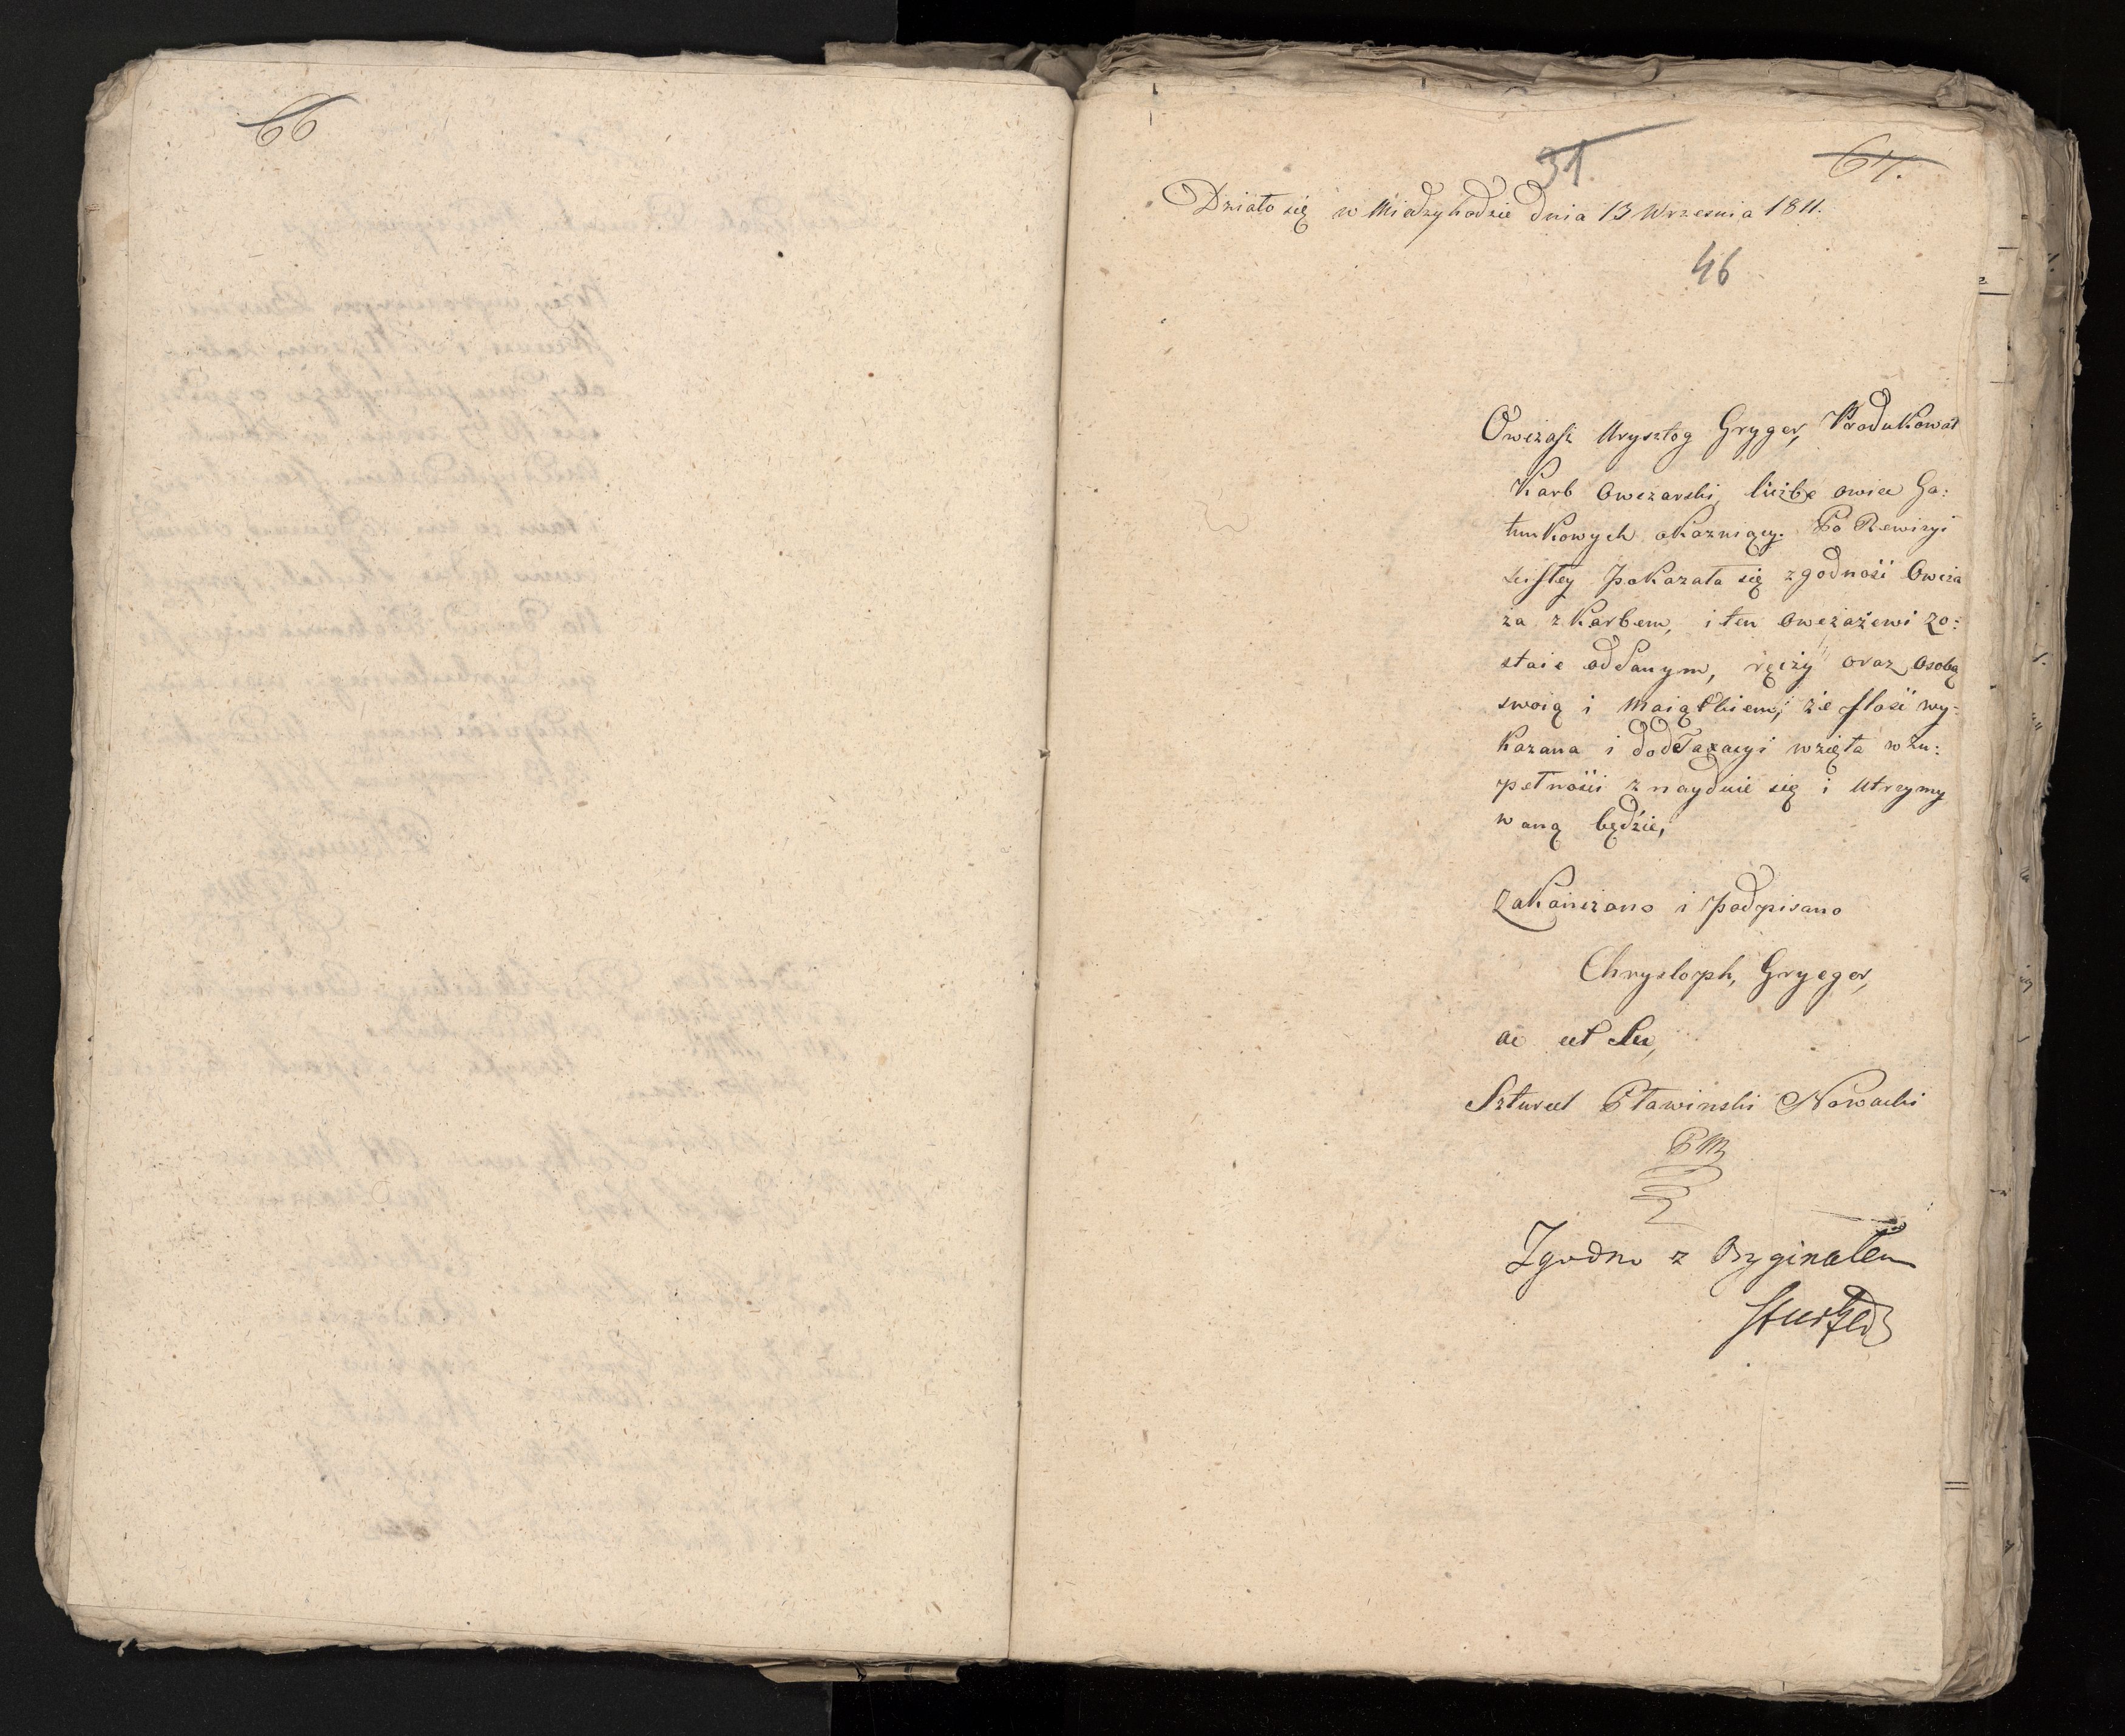 66
31.
67.
Działo się w Miedzyhodzie dnia 13 Wrzesnia 1811.
46
Owczaſz Krysztog Gryger, Produkował
Karb Owczarski, liczbę owiec Ga:
tunkowych okazuiący. Po Rewizyi
scisłey pokazała się zgodność Owcza
za z Karbem, i ten owczażewi zo:
staie oddanym, ręczy oraz osobą
swoią i maiątkiem, że ilość wy:
kazana i do deTaxacyi wzięta w zu:
pełności znayduie się i utrzymy
waną będzie,
Zakończono i podpisano
Chrystoph, Gryeger,
ac ut su,
Szturcel Pławinski Nowacki
Zgodno z Oryginałem